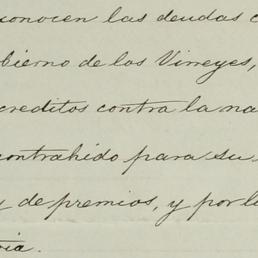 conocen las deudas c
bierno de los Virreyes,
creditos contra la na
contrahido para su
y de premios, y por l
ia.